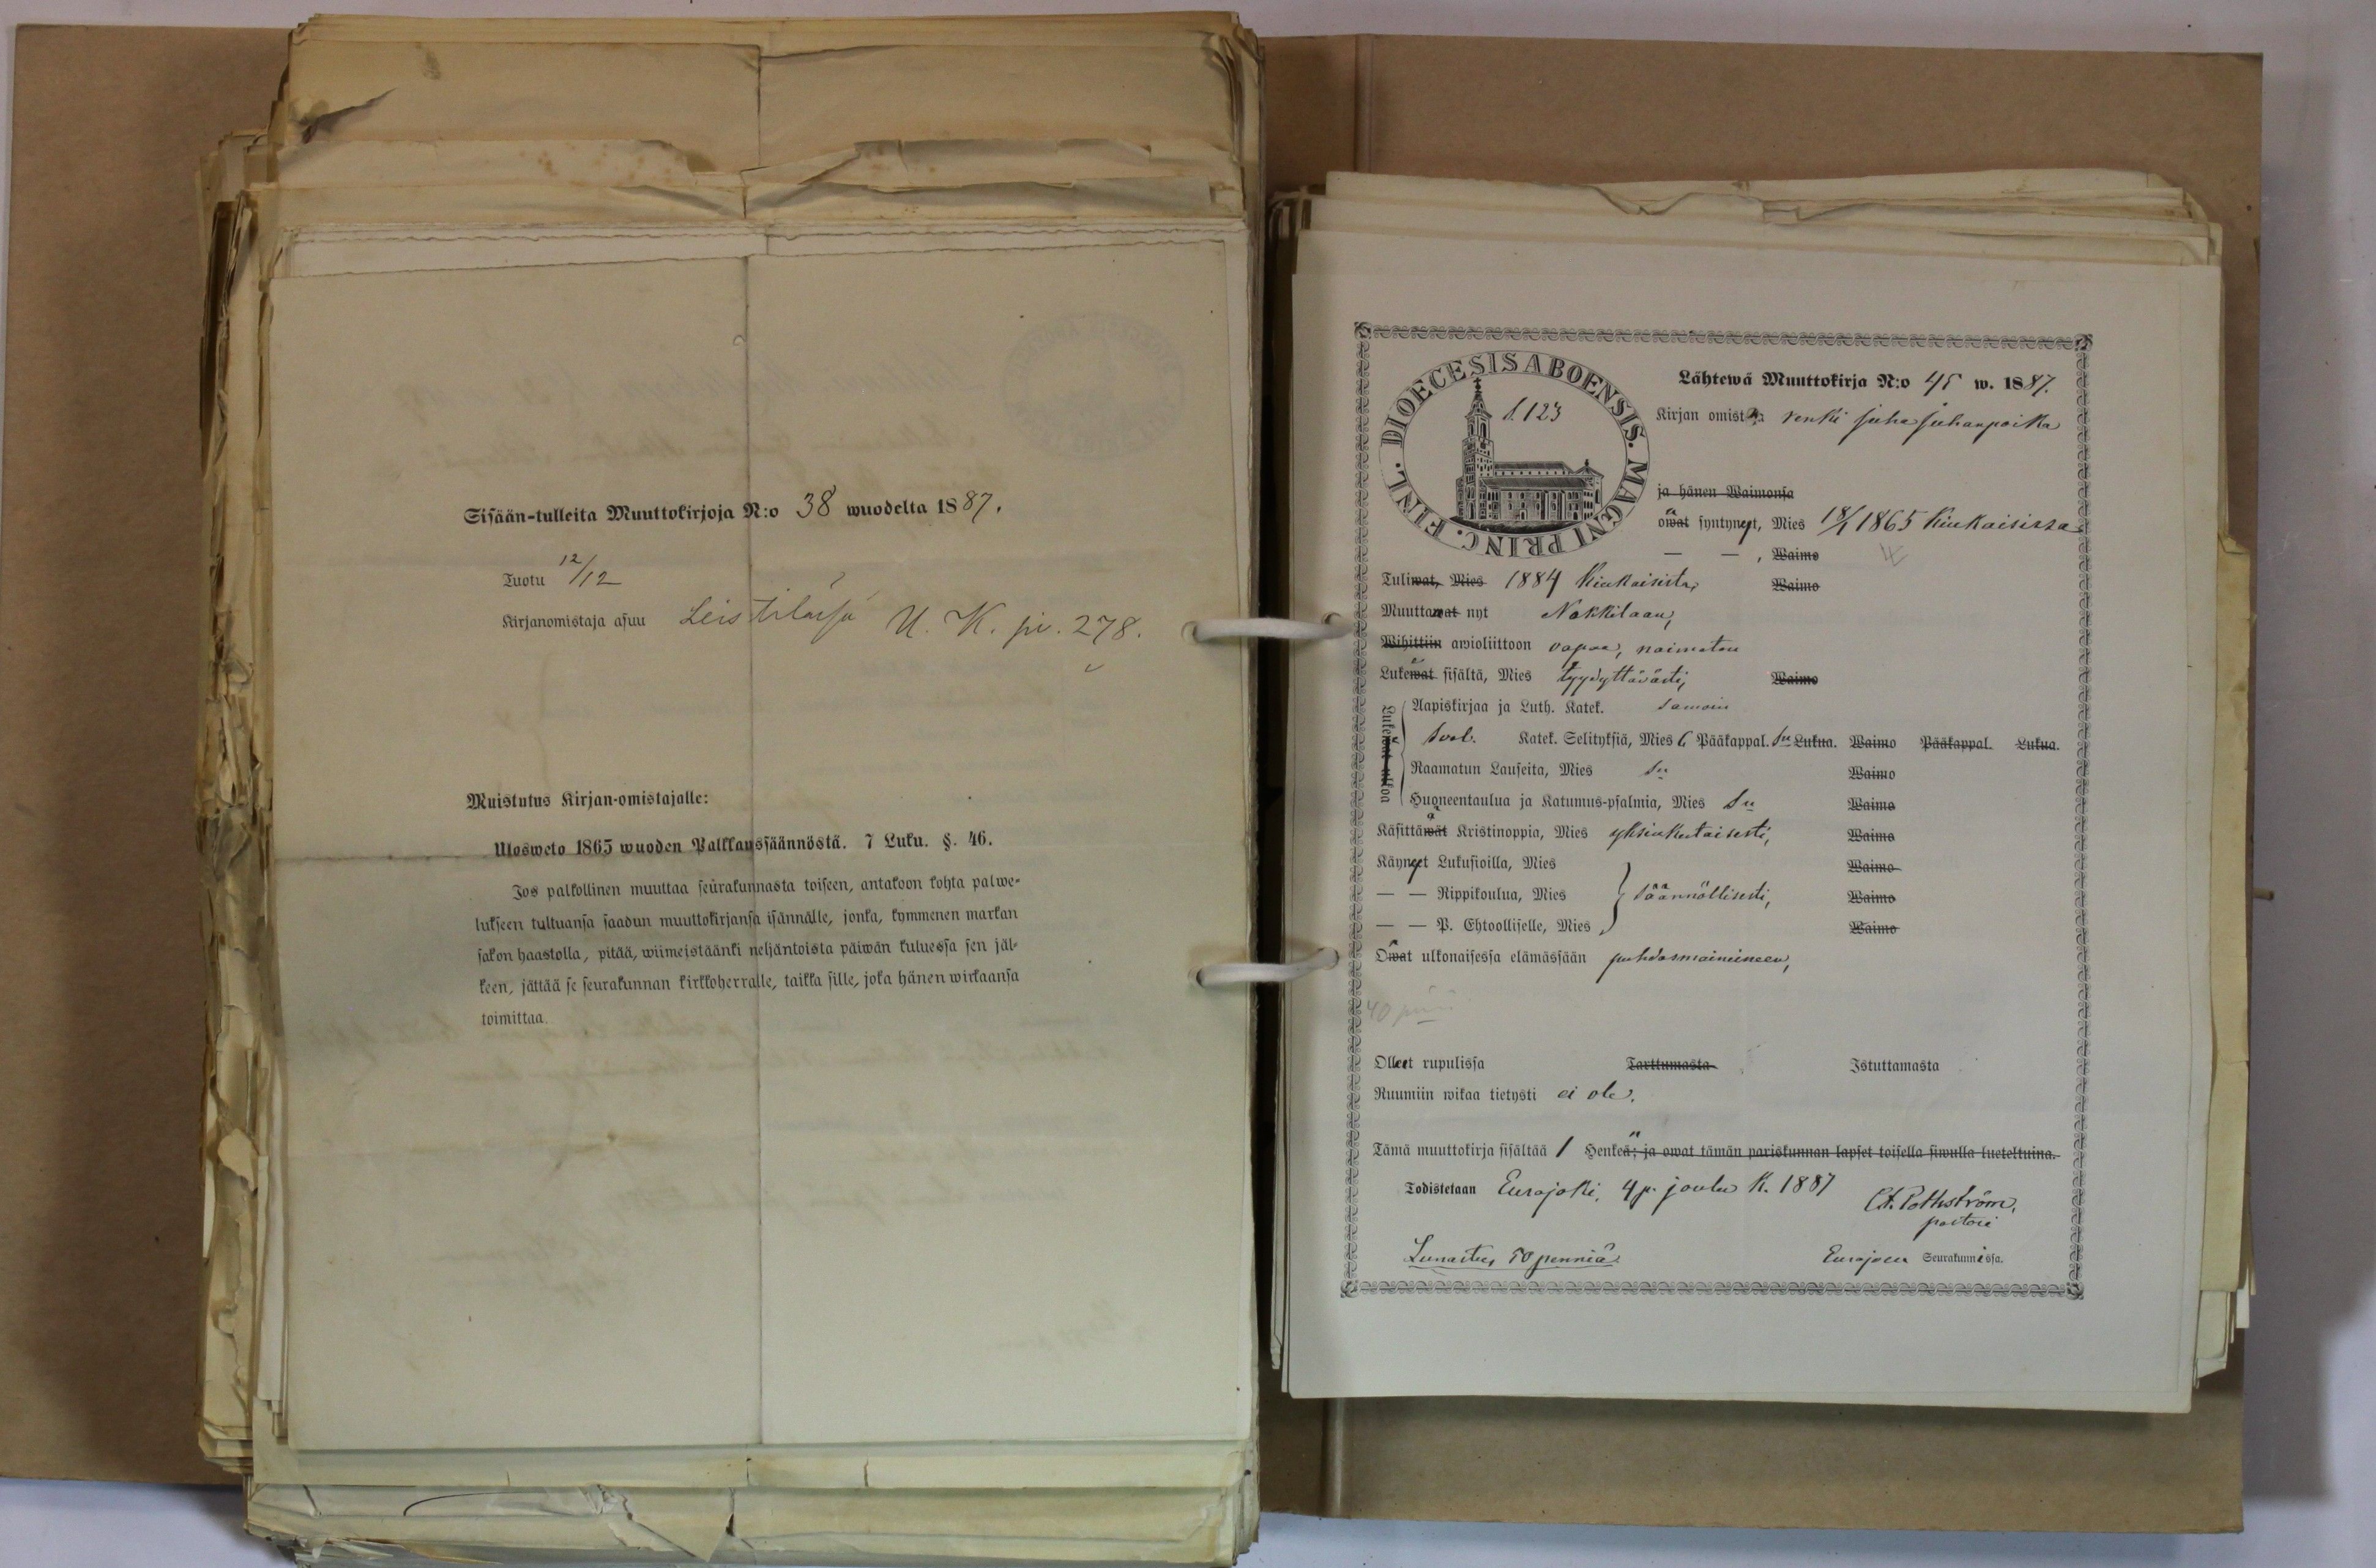 Sisään-tulleita Muuttokirjoja N:o 38 wuodelta 1887.
Tuotu 12/12
Kirjanomistaja asuu Leistiläsä U. K. pv. 278.
Muistutus Kirjan-omistajalle:
Ulosweto 1865 wuoden Palkkaussäännöstä. 7 Luku. §. 46.
Jos palkollinen muuttaa seurakunnasta toiseen, antakoon kohta palwe-
lukseen tultuansa saadun muuttokirjansa isännälle, jonka, kymmenen markan
sakon haastolla, pitää, wiimeistäänki neljäntoista päiwän kuluessa sen jäl-
keen, jättää se seurakunnan kirkkoherralle, taikka sille, joka hänen wirkaansa
toimittaa.
DIOECESIS ABOENSIS. MAGNI PRINC. FINL.
S. 123
Lähtewä Muuttokirja N:o 45 w. 1887.
Kirjan omistaja renki Juha Juhanpoika
ja hänen Waimonsa
owat syntynyt, Mies 18/1 1865 Kiukaisissa
— — , Waimo
Tuliwat, Mies 1884 Kiukaisista, Waimo
Muuttawat nyt Nakkilaan,
Wihittiin awioliittoon vapaa, naimaton
Lukewat sisältä, Mies tyydyttävästi, Waimo
Lukewat ulkoa
Aapiskirjaa ja Luth. Katek. samoin
Svel. Katek. Selityksiä, Mies 6 Pääkappal. Lukua. Waimo Pääkappal. Lukua.
Raamatun Lauseita, Mies Waimo
Huoneentaulua ja Katumus-psalmia, Mies Waimo
Käsittäwät Kristinoppia, Mies yksinkertaisesti, Waimo
Käynyt Lukusioilla, Mies Waimo
— — Rippikoulua, Mies säännöllisesti, Waimo
— — P. Ehtoolliselle, Mies Waimo
Owat ulkonaisessa elämässään puhdasmaineineen,
40 p
Olleet rupulissa Tarttumasta Istuttamasta
Ruumiin wikaa tietysti ei ole.
Tämä muuttokirja sisältää 1 Henkeä; ja owat tämän pariskunnan lapset toisella siwulla lueteltuina.
Todistetaan Eurajoki, 4 p. joulu k. 1887
pastori
Lunastus 50 penniä
Eurajoen Seurakunnissa.